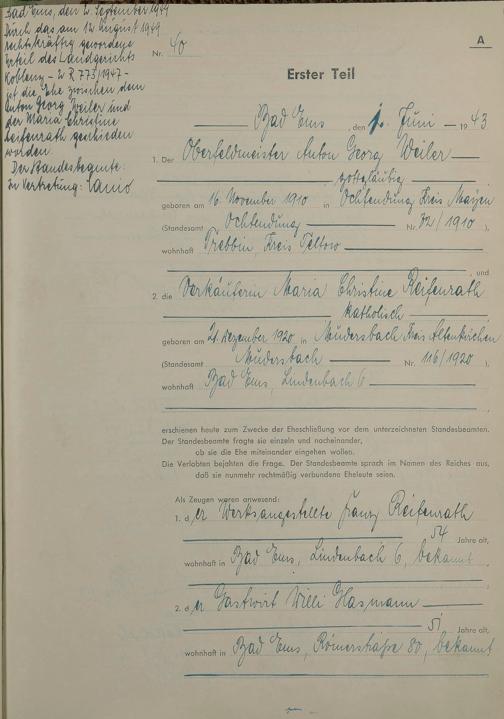 Bad Ems, den 2. September 1949
Durch das am 12. August 1949
rechtskräftig gewordene
Urteil des Landgerichts
Koblenz - 2 R 773/1947 -
ist die Ehe zwischen dem
Anton Georg Weiler und
der Maria Christine
Reifenrath geschieden
worden.
Der Standesbeamte:
In Vertretung:
A
Nr. 40
Erster Teil
Bad Ems, den 1. Juni 1943
1. Der Oberfeldmeister Anton Georg Weiler
gottgläubig
geboren am 16. November 1910 in Ochtendung Kreis Mayen
(Standesamt Ochtendung Nr. 32/1910),
wohnhaft Trebbin Kreis Teltow
, und
2. die Verkäuferin Maria Christine Reifenrath
katholisch
geboren am 21. Dezember 1920 in Mudersbach Kreis Altenkirchen
(Standesamt Mudersbach Nr. 116/1920),
wohnhaft Bad Ems, Lindenbach 6
erschienen heute zum Zwecke der Eheschließung vor dem unterzeichneten Standesbeamten.
Der Standesbeamte fragte sie einzeln und nacheinander,
ob sie die Ehe miteinander eingehen wollen.
Die Verlobten bejahten die Frage. Der Standesbeamte sprach im Namen des Reiches aus,
daß sie nunmehr rechtmäßig verbundene Eheleute seien.
Als Zeugen waren anwesend:
1. der Werksangestellte Franz Reifenrath
54 Jahre alt,
wohnhaft in Bad Ems, Lindenbach 6, bekannt
2. der Gastwirt Willi Hasmann
51 Jahre alt,
wohnhaft in Bad Ems, Römerstraße 80, bekannt